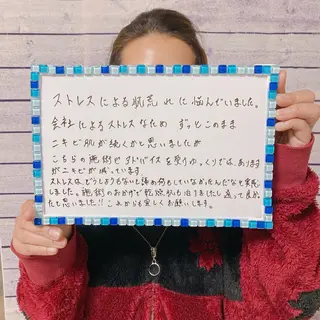 ストレスによる肌荒れに悩んでいました。
会社によるストレスなため ずっとこのまま
ニキビ肌が続くかと思いましたが
こちらの施術やアドバイスを受け、ゆっくりではありますが
ニキビが減っています。
ストレスはどうしようもないと諦め何もしていなかったんだなと実感
しました。施術のおかげで乾燥肌も治りましたし 通って良かっ
たと思いました!! これからも宜しくお願いします。